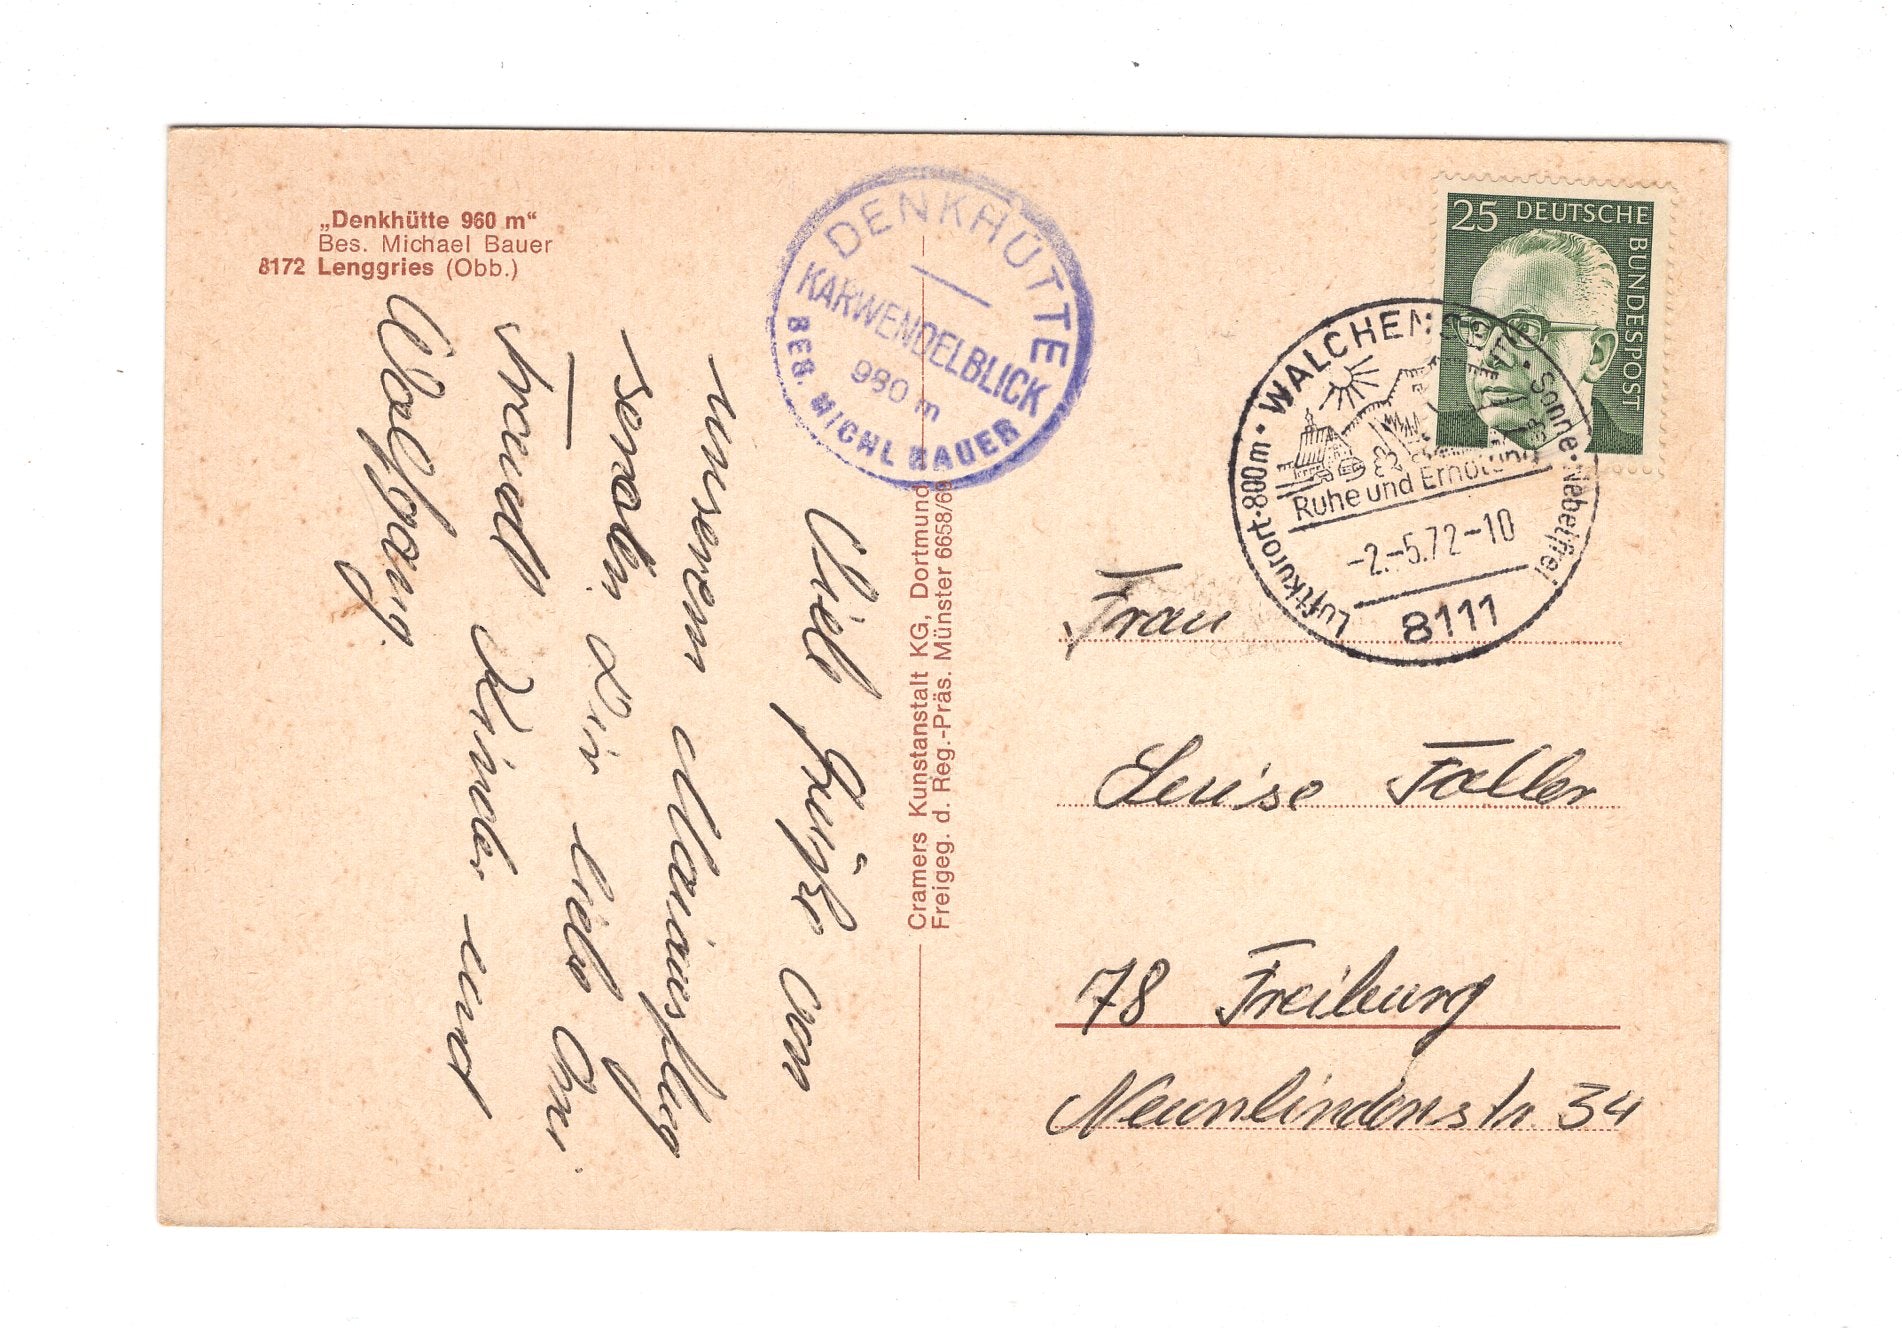 „Denkhütte 960 m“
Bes. Michael Bauer
8172 Lenggries (Obb.)
DENKHÜTTE
KARWENDELBLICK
980 m
BES. MICHL BAUER
Viele Grüße von
unserem Mainusflug
senden Dir liebe Omi
Traudl Kinder und
Wolfgang.
Cramers Kunstanstalt KG, Dortmund
Freigeg. d. Reg.-Präs. Münster 6658/69
25 DEUTSCHE
BUNDESPOST
WALCHENSEE
Luftkurort · 800m · Sonne · Nebelfrei
Ruhe und Erholung
-2.-5.72-10
8111
Frau
Luise Faller
78 Freiburg
Neunlindenstr. 34